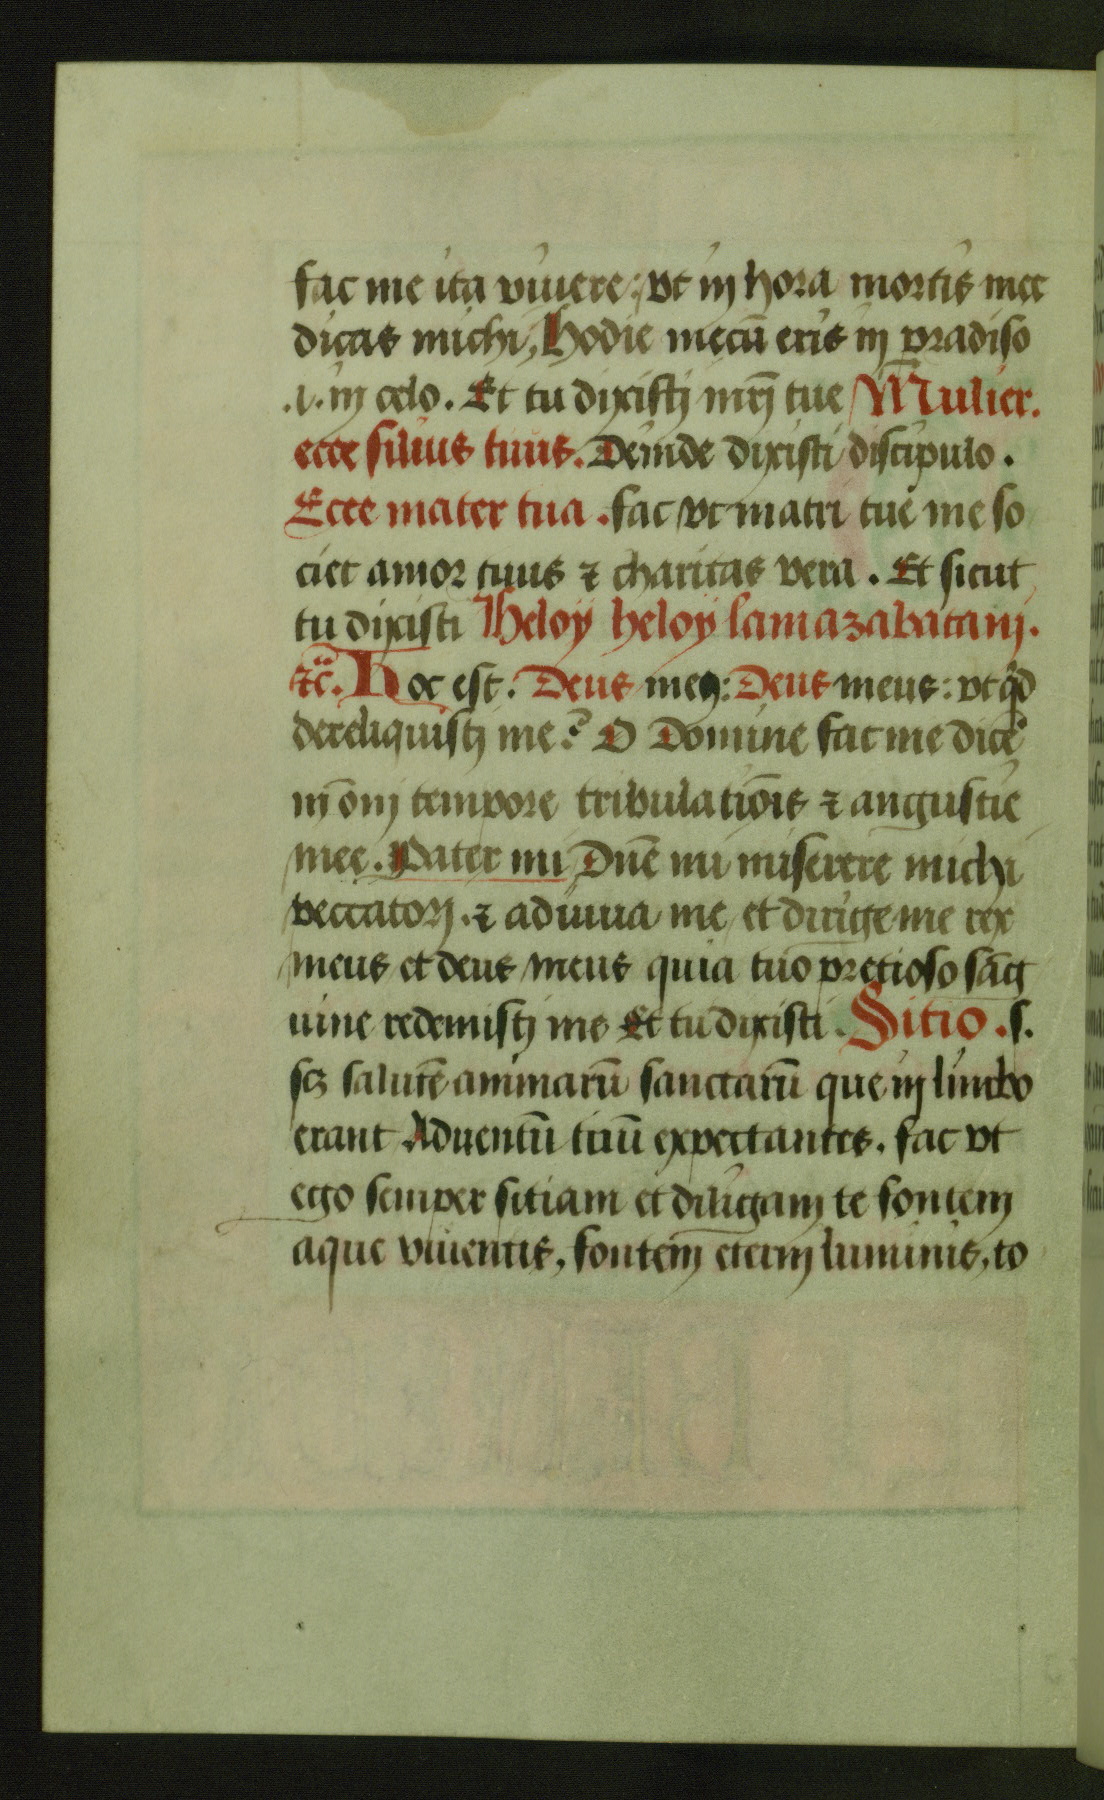 fac me ita viuere: vt in hora mortis mee
dicas michi, Hodie mecū eris in p̱radiso
.i. in celo. Et tu dixisti mr̄i tue Mulier.
ecce filius tuus. Deinde dixisti discipulo.
Ecce mater tua. fac vt matri tue me so
ciet amor tuus ⁊ charitas vera. Et sicut
tu dixisti Heloÿ heloÿ lamazabatani.
⁊c̄. Hoc est. Deus meꝰ: Deus meus: vt qͥd
dereliquisti me? O Domine fac me dicē
in om̄i tempore tribulatiōis ⁊ angustie
mee. Pater mi, Dn̄e mi miserere michi
peccatori. ⁊ adiuua me et dirige me rex
meus et deus meus quia tuo pretioso sāg
uine redemisti me Et tu dixisti. Sitio. s.
scꝫ salutē animarū sanctarū que in limbo
erant Aduentū tuū expectantes. fac vt
ego semper sitiam et diligam te fontem
aque viuentis, fontem eterni luminis, to